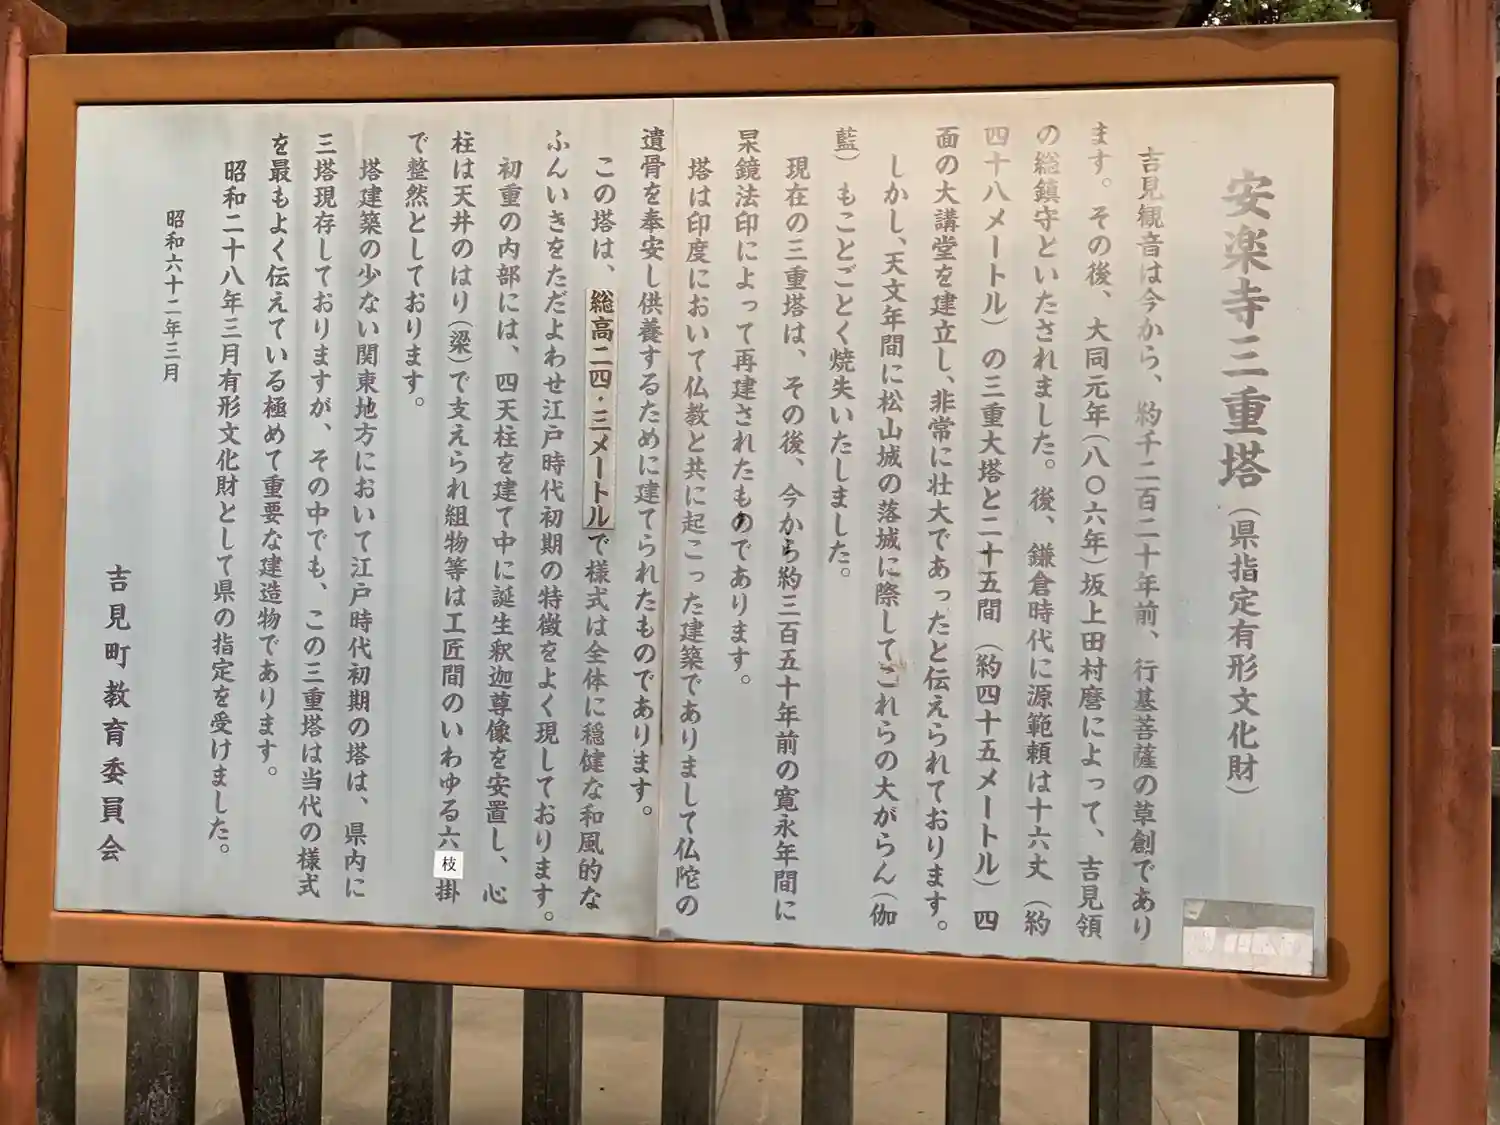 安楽寺三重塔（県指定有形文化財）
吉見観音は今から、約千二百二十年前、行基菩薩の草創であり
ます。その後、大同元年（八〇六年）坂上田村麿によって、吉見領
の総鎮守といたされました。後、鎌倉時代に源範頼は十六丈（約
四十八メートル）の三重大塔と二十五間（約四十五メートル）四
面の大講堂を建立し、非常に壮大であったと伝えられております。
しかし、天文年間に松山城の落城に際してこれらの大がらん（伽
藍）もことごとく焼失いたしました。
現在の三重塔は、その後、今から約三百五十年前の寛永年間に
杲鏡法印によって再建されたものであります。
塔は印度において仏教と共に起こった建築でありまして仏陀の
遺骨を奉安し供養するために建てられたものであります。
この塔は、総高二四・三メートルで様式は全体に穏健な和風的な
ふんいきをただよわせ江戸時代初期の特徴をよく現しております。
初重の内部には、四天柱を建て中に誕生釈迦尊像を安置し、心
柱は天井のはり（梁）で支えられ組物等は工匠間のいわゆる六枝掛
で整然としております。
塔建築の少ない関東地方において江戸時代初期の塔は、県内に
三塔現存しておりますが、その中でも、この三重塔は当代の様式
を最もよく伝えている極めて重要な建造物であります。
昭和二十八年三月有形文化財として県の指定を受けました。
昭和六十二年三月
吉見町教育委員会